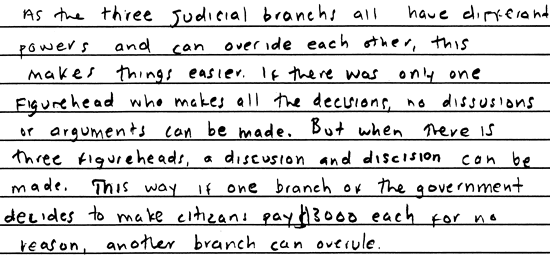 As the three Judicial branchs all have differand
powers and can overide each other, this
makes things easier. If there was only one
Figurehead who makes all the decisions, no dissusions
or arguments can be made. But when there is
three figureheads, a discusion and discision can be
made. This way if one branch of the government
decides to make citizans pay $13000 each for no
reason, another branch can overule.